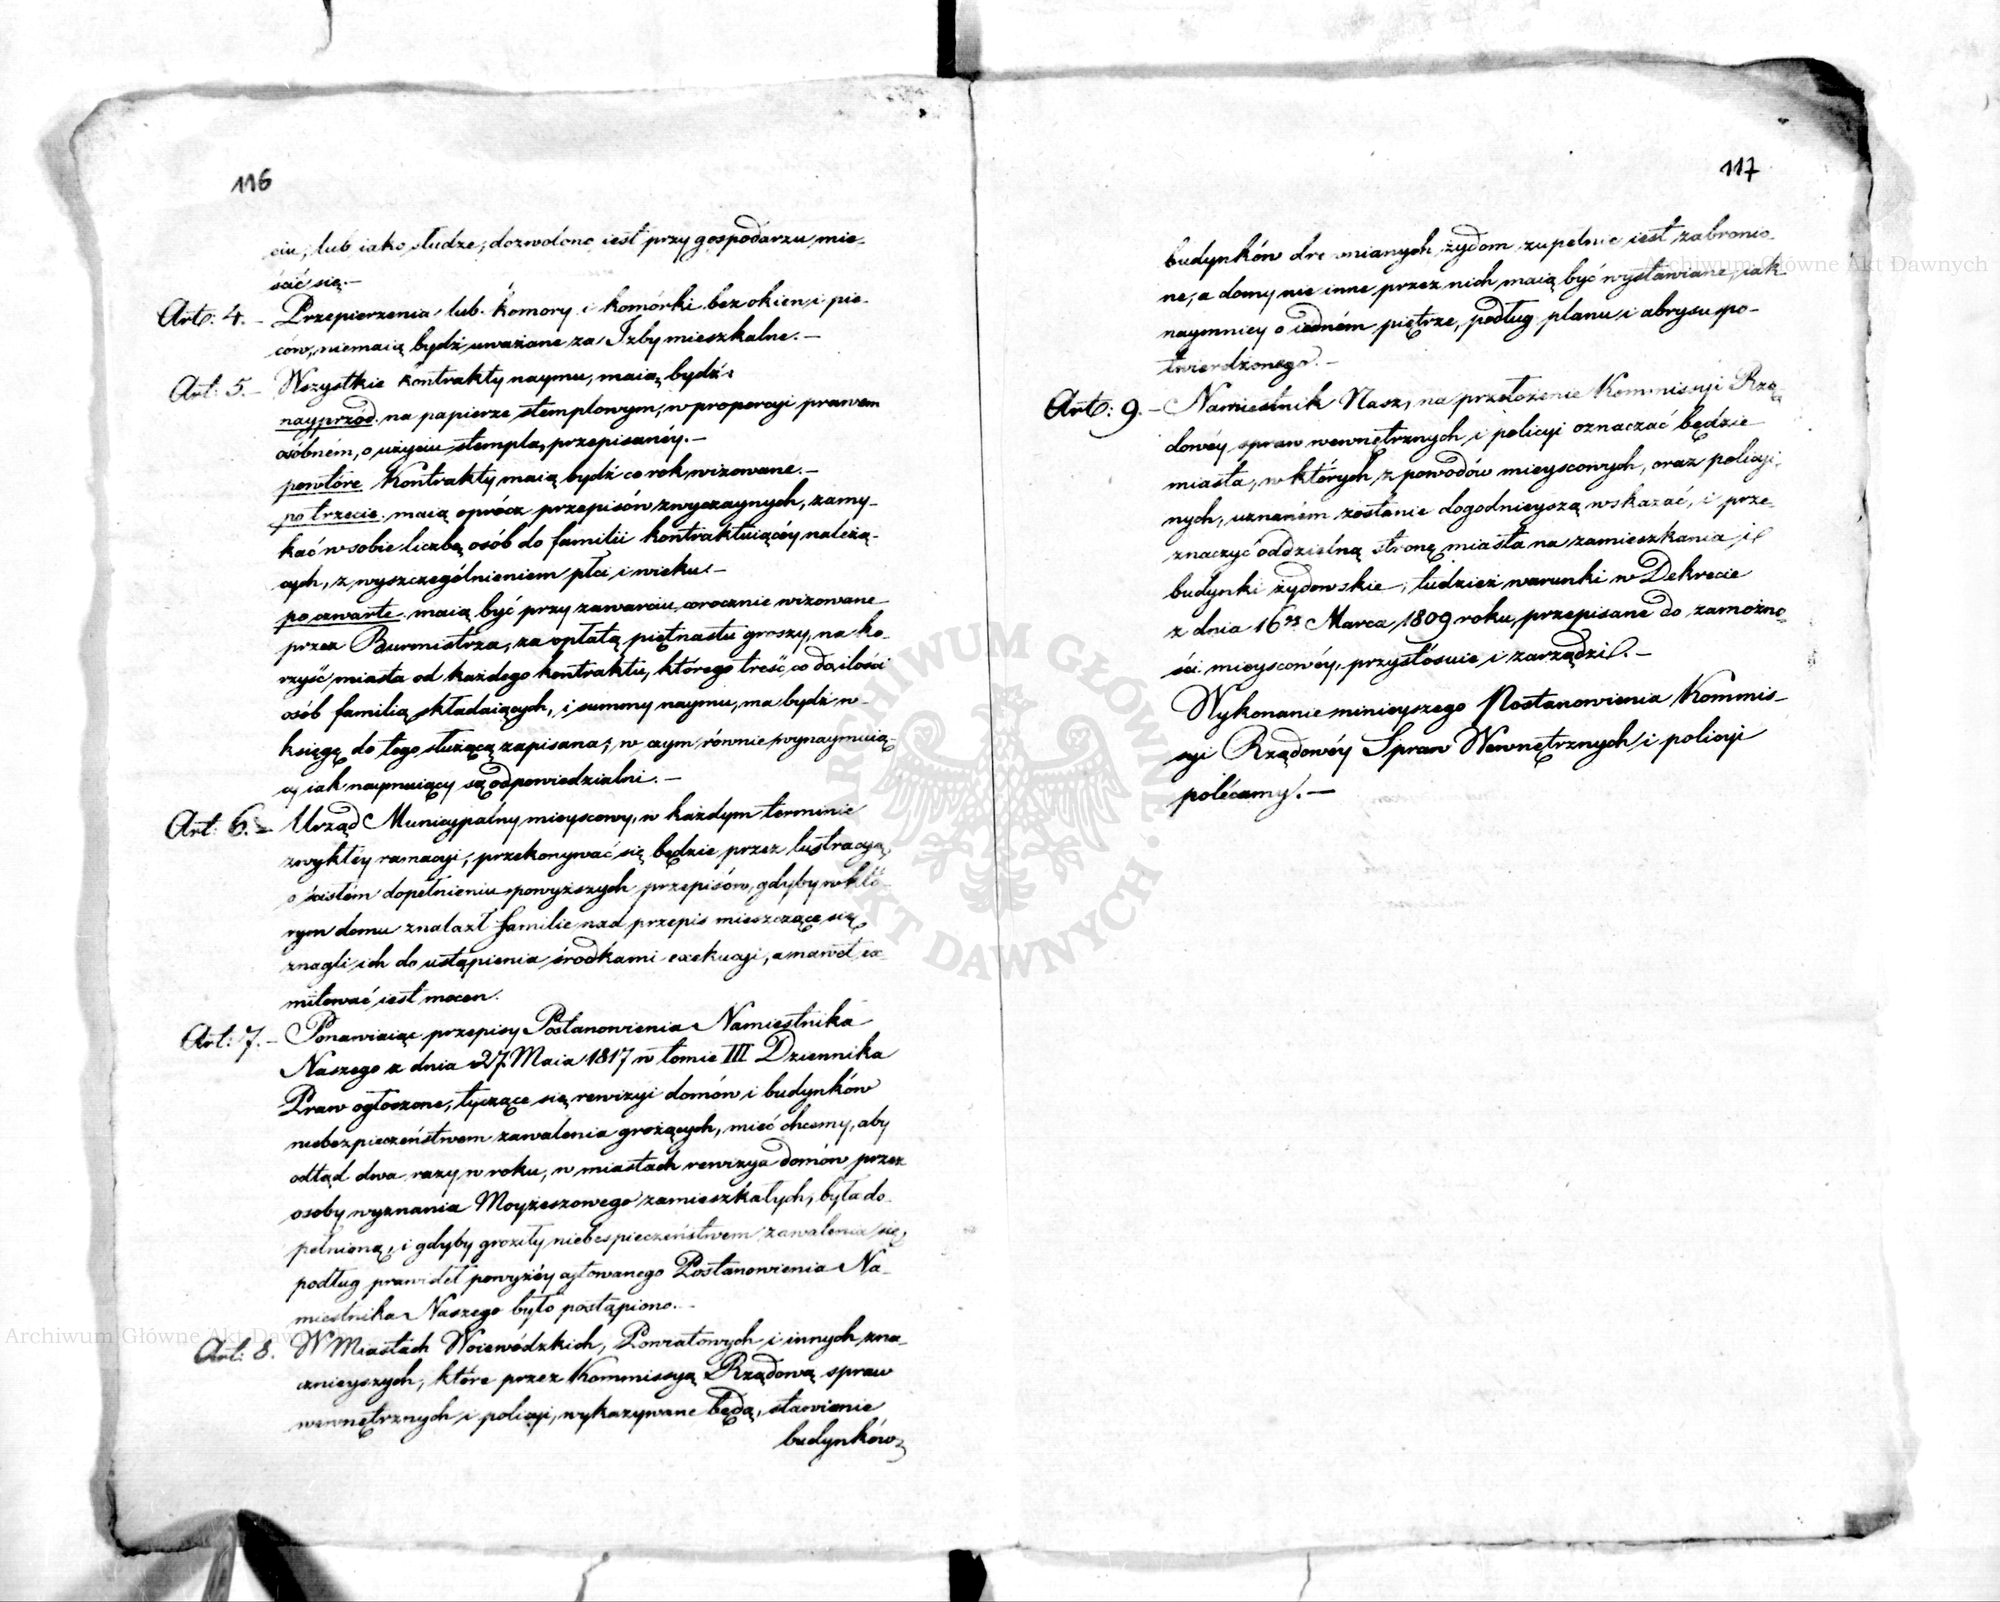 116
ciu, lub iako słudze, dozwolono iest przy gospodarzu mie-
ścić się.-
Art: 4. - Przepierzenia lub komory i komórki bez okien i pie-
ców, niemaią bydź uważane za Izby mieszkalne. -
Art: 5. - Wszystkie kontrakty naymu, maią bydź:
nayprzód na papierze stemplowym, w proporcyi prawem
osóbném, o użyciu stempla, przepisanéy. -
powtóre Kontrakty maią bydź co rok wizowane. -
po trzecie. maią oprócz przepisów zwyczaynych, zamy-
kać w sobie liczbę osób do familii kontraktuiącéy należą-
cych, z wyszczególnieniem płci i wieku. -
po czwarte. maią być przy zawarciu corocznie wizowane
przez Burmistrza, za opłatą piętnastu groszy, na ko-
rzyść miasta od każdego kontraktu, którego treść co do ilości
osób familią składaiących, i summy naymu, ma bydź w
księgę do tego służącą zapisana, w czym równie wynaymuią-
cy iak naymuiący są odpowiedzialni. -
Art: 6. - Urząd Municypalny mieyscowy, w każdym terminie
zwykłéy rumacyi, przekonywać się będzie przez lustracyą,
o ścisłém dopełnieniu powyższych przepisów, gdyby w któ-
rym domu znalazł familie nad przepis mieszczące się
znagli ich do ustąpienia środkami exekucyi, a nawet ex-
mitować iest mocen.
Art: 7. - Ponawiaiąc przepisy Postanowienia Namiestnika
Naszego z dnia 27 Maia 1817 w tomie III Dziennika
Praw ogłoszone, tyczące się rewizyi domów i budynków
niebezpieczeństwem zawalenia grożących, mieć chcemy, aby
odtąd dwa razy w roku, w miastach rewizya domów przez
osoby wyznania Moyżeszowego zamieszkałych, była do-
pełnioną, i gdyby groziły niebespieczeństwem zawalenia się,
podług prawideł powyżéy cytowanego Postanowienia Na-
miestnika Naszego było postąpiono. -
Art: 8. W Miastach Woiewódzkich, Powiatowych i innych zna-
cznieyszych, które przez Kommissyą Rządową spraw
wewnętrznych i policyi, wykazywane będą, stawienie
budynków
117
budynków drewnianych żydom zupełnie iest zabronio-
ne, a domy nie inne przez nich maią być wystawiane, iak
naymniey o iedném piętrze, podług planu i abrysu po-
twierdzonego. -
Art: 9. - Namiestnik Nasz, na przełożenie Kommissyi Rzą-
dowéy spraw wewnętrznych i policyi oznaczać będzie
miasta, w których z powodów mieyscowych, oraz policyi-
nych, uznaném zostanie dogodnieyszą wskazać, i prze-
znaczyć oddzielną stronę miasta na zamieszkania i
budynki żydowskie, tudzież warunki w Dekrecie
z dnia 16go Marca 1809 roku przepisane do zamożno-
ści mieyscowéy, przystósuie i zarządzi. -
Wykonanie ninieyszego Postanowienia Kommis-
syi Rządowéy Spraw Wewnętrznych i policyi
polécamy. -
ARCHIWUM GŁÓWNE AKT DAWNYCH
Archiwum Główne Akt Dawnych
Archiwum Główne Akt Dawnych